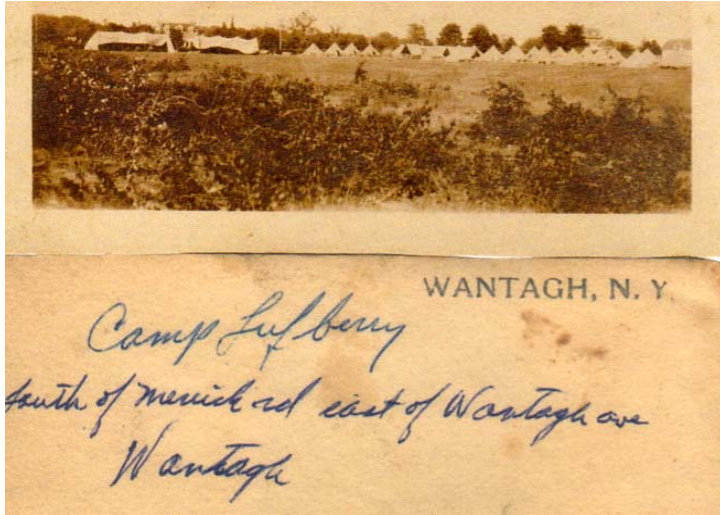 WANTAGH, N. Y.
Camp Lufberry
south of Merrick rd east of Wantagh ave
Wantagh